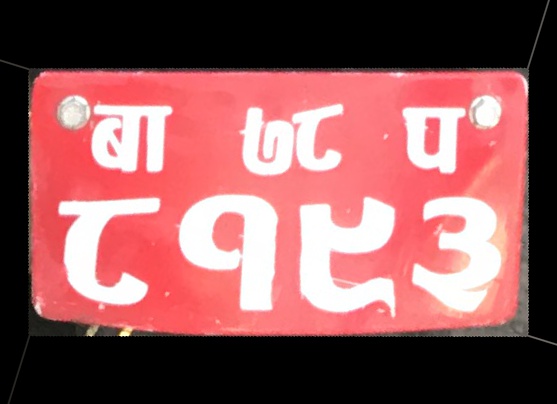 बा ७८ प
८१५३